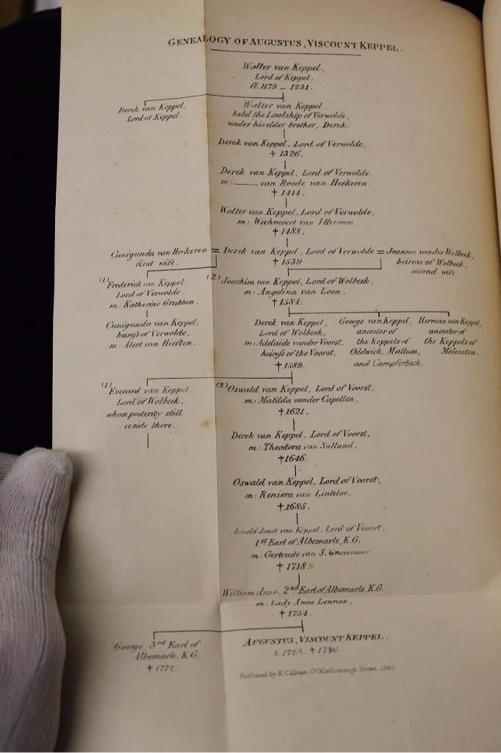 GENEALOGY OF AUGUSTUS, VISCOUNT KEPPEL.
Walter van Keppel,
Lord of Keppel,
fl. 1179 – 1231.
Derek van Keppel,
Lord of Keppel.
Walter van Keppel
held the Lordship of Verwolde,
under his elder brother, Derek.
Derek van Keppel, Lord of Verwolde,
† 1326.
Derek van Keppel, Lord of Verwolde,
m: van Roode van Heekeren.
† 1414.
Walter van Keppel, Lord of Verwolde,
m: Wichmoert van
† 1488.
Cunigunda van Herkeren
first wife.
= Derek van Keppel, Lord of Verwolde =
† 1539
Joanna vander Wolbeek,
heiress of Wolbeek,
second wife.
(1)
Frederick van Keppel
Lord of Verwolde
m: Katherine Grubben.
(2) Joachim van Keppel, Lord of Wolbeek,
m: Angelina van Loon.
† 1584.
Cunigunda van Keppel,
heiress of Verwolde,
m: Alert van Hieften.
Derek van Keppel,
Lord of Wolbeek,
m: Adelaide vander Voorst,
heiress of the Voorst,
† 1589.
George van Keppel,
ancestor of
the Keppels of
Oldwick, Mallum,
and Campferbeck.
Herman van Keppel,
ancestor of
the Keppels of
Molecaten.
(1)
Everard van Keppel
Lord of Wolbeek,
whose posterity still
reside there.
(2) Oswald van Keppel, Lord of Voorst,
m: Matilda vander Capellen,
† 1621.
Derek van Keppel, Lord of Voorst,
m: Theodora van Salland,
† 1646.
Oswald van Keppel, Lord of Voorst,
m: Reniera van Linteloe.
† 1685.
Arnold Joost van Keppel, Lord of Voorst,
1st Earl of Albemarle, K.G.
m: Gertrude van S.
† 1718
William Anne, 2nd Earl of Albemarle, K.G.
m: Lady Anne Lennox.
† 1754.
George, 3rd Earl of
Albemarle, K.G.
† 1772.
AUGUSTUS, VISCOUNT KEPPEL.
b. 1725. † 1786.
Published by H. Colburn, Gt Marlborough Street, 1842.